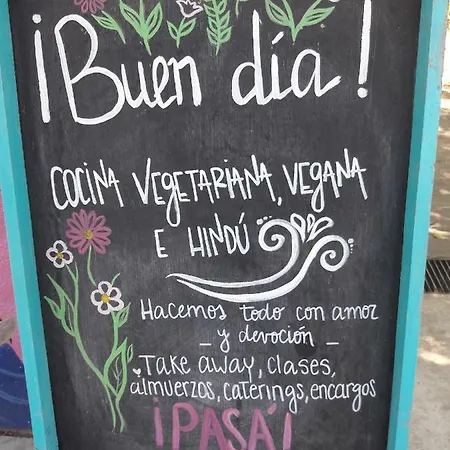 ¡Buen día!
COCINA VEGETARIANA, VEGANA
E HINDÚ
Hacemos todo con amor
- y devoción -
TAKE AWAY, CLASES,
almuerzos, caterings, encargos
¡PASÁ!